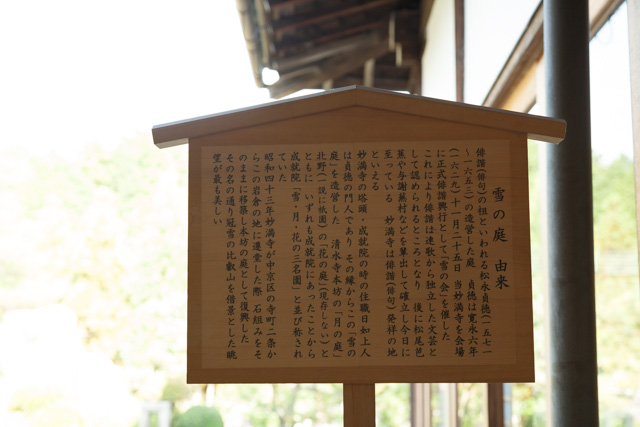 雪の庭 由来
俳諧(俳句)の祖といわれる松永貞徳(一五七一
～一六五三)の造営した庭 貞徳は寛永六年
(一六二九)十一月二十五日 当妙満寺を会場
に正式俳諧興行として「雪の会」を催した
これにより俳諧は連歌から独立した文芸と
して認められるところとなり 後に松尾芭
蕉や与謝蕪村などを輩出して確立し今日に
至っている 妙満寺は俳諧(俳句)発祥の地
といえる
妙満寺の塔頭・成就院の時の住職日如上人
は貞徳の門人であり その縁からこの「雪の
庭」を造営した 清水寺本坊の「月の庭」
北野(一説に祇園)の「花の庭」(現存しない)と
ともに いずれも成就院にあったことから
成就院「雪・月・花の三名園」と並び称され
ていた
昭和四十三年妙満寺が中京区の寺町二条か
らこの岩倉の地に遷堂した際 石組みをそ
のままに移築し本坊の庭として復興した
その名の通り冠雪の比叡山を借景とした眺
望が最も美しい